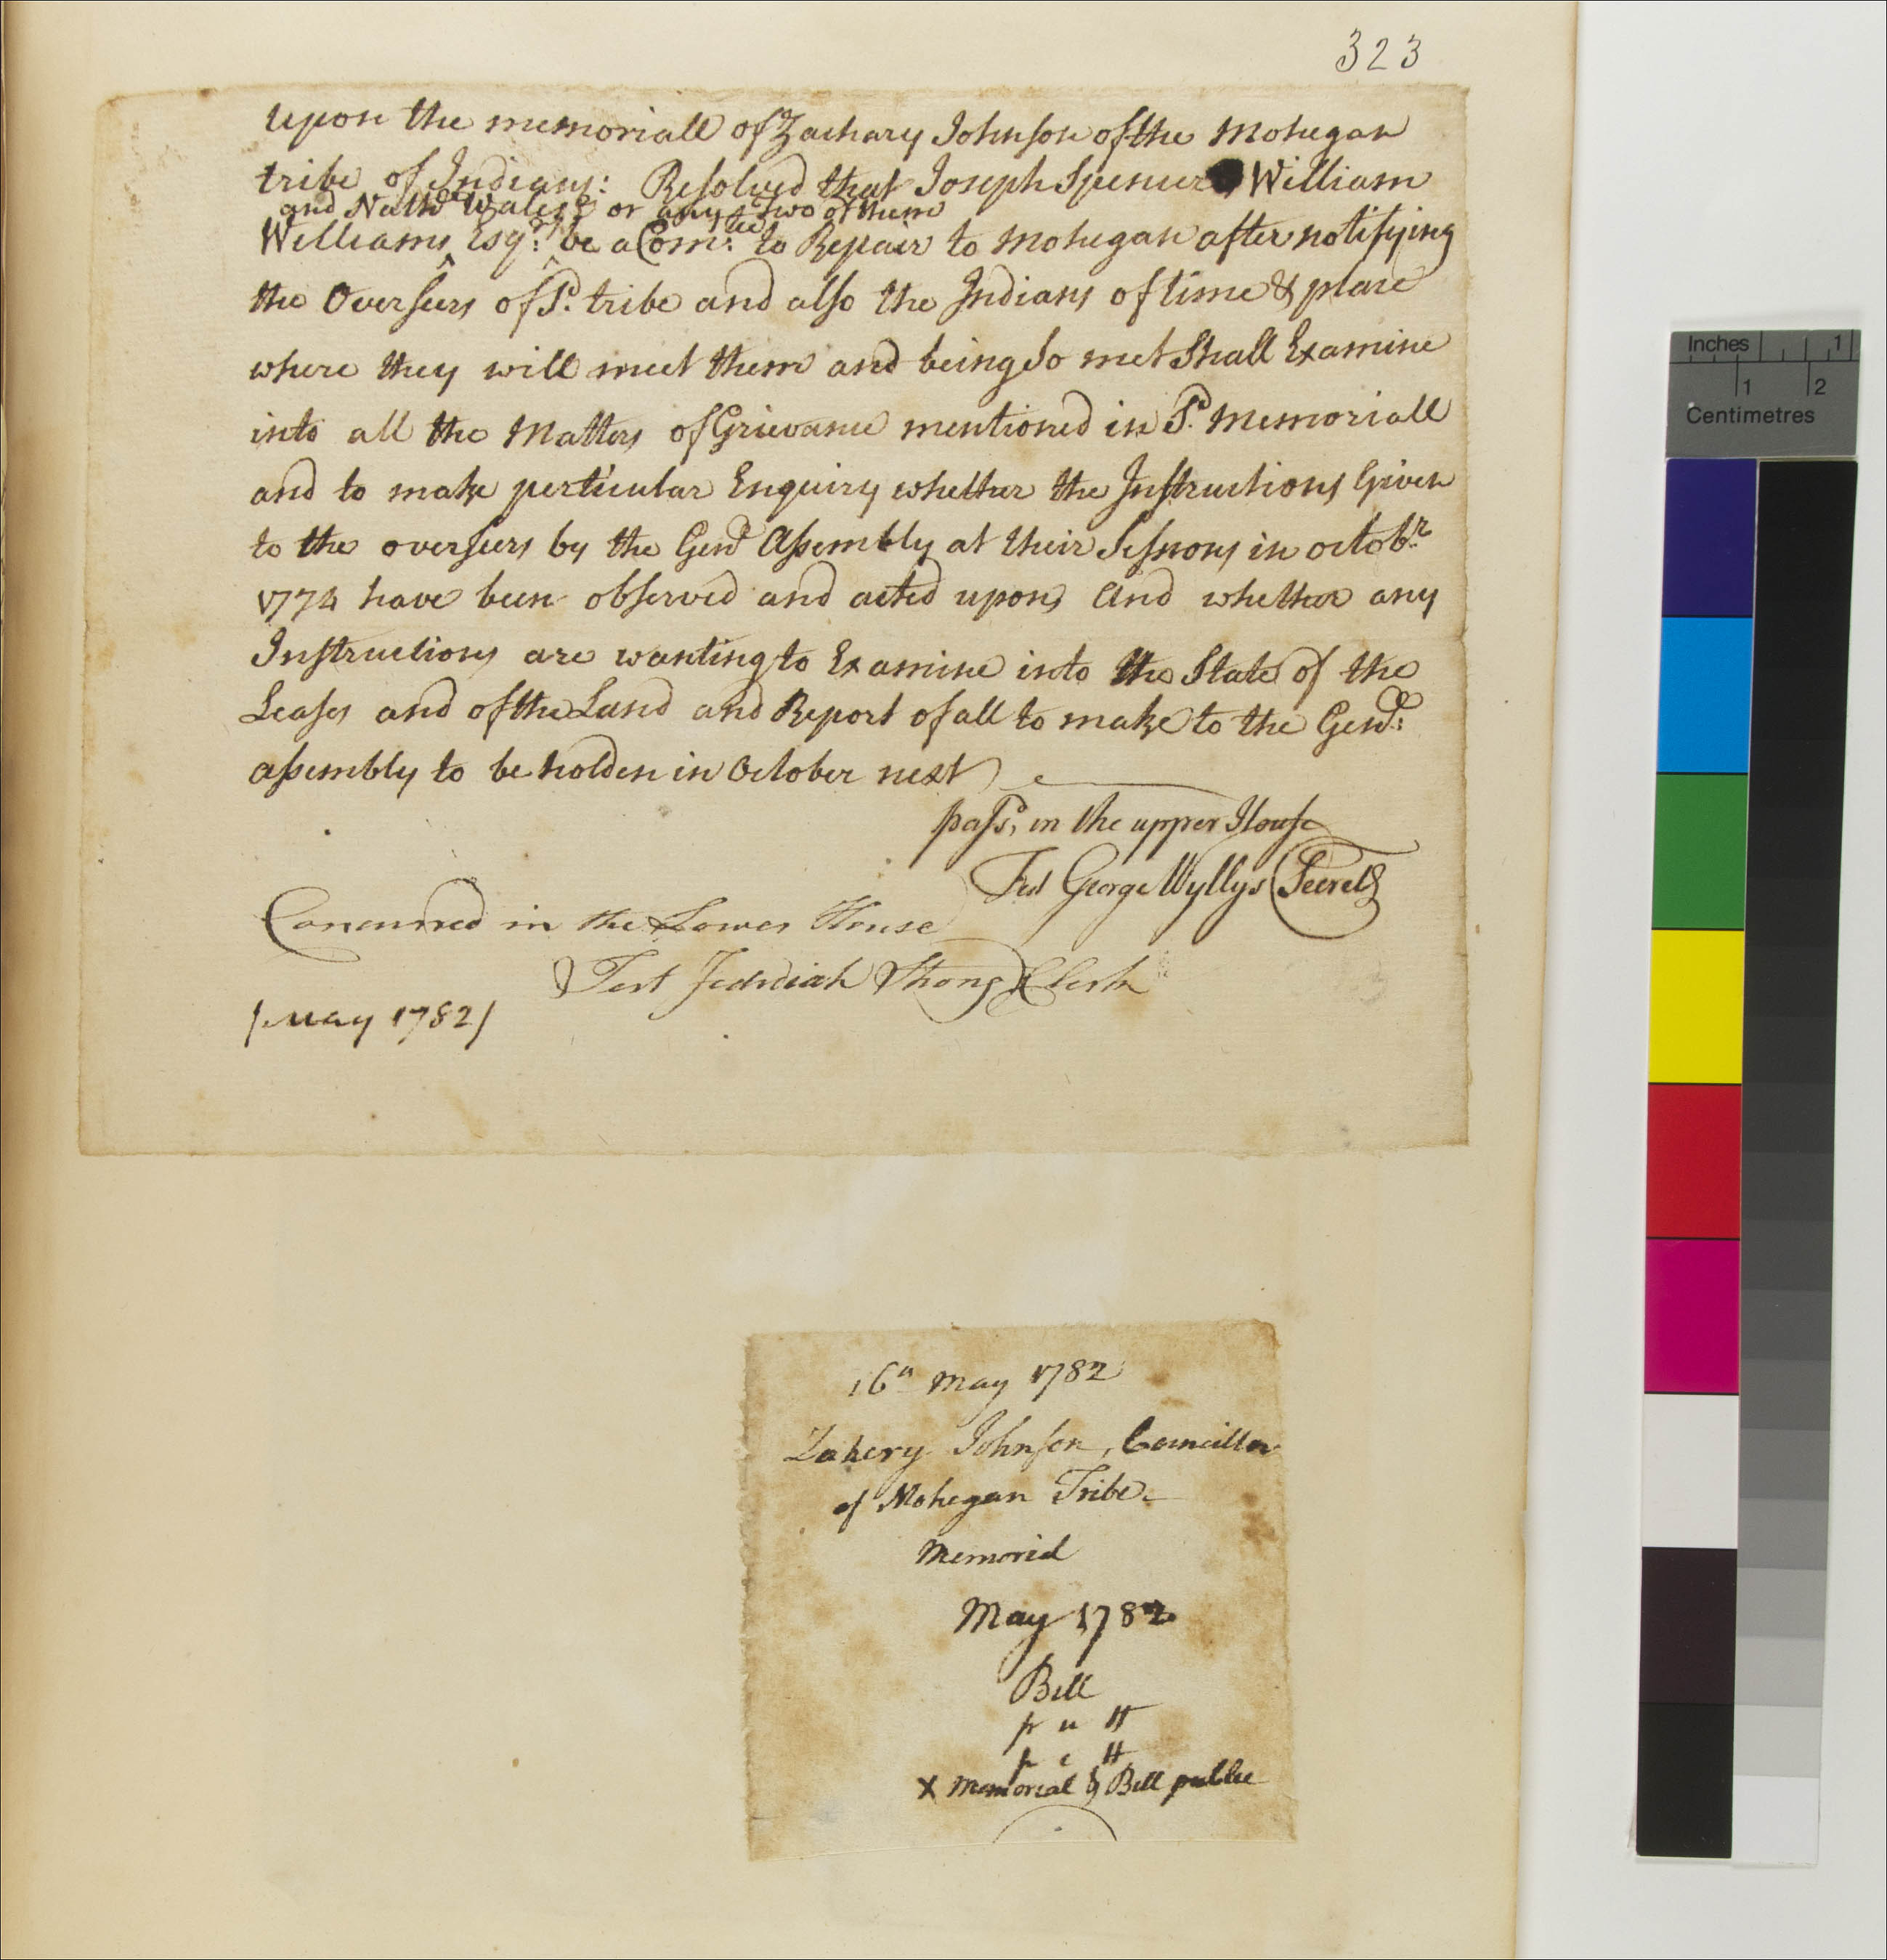 323
Upon the memoriall of Zachary Johnson of the Mohegan
tribe of Indians: Resolved that Joseph Spencer William
and Nathll Wales or any Two of them
Williams Esqrs: be a Comtee: to Repair to Mohegan after notifying
the Overseers of Sd. tribe and also the Indians of time & place
where they will meet them and being So met Shall Examine
into all the Matters of Grievance mentioned in Sd. Memoriall
and to make perticular Enquiry whether the Instructions Given
to the overseers by the Genll Assembly at their Sessions in octobr
1774 have been observed and acted upon, and whether any
Instructions are wanting to Examine into the State of the
Leases and of the Land and Report of all to make to the Genll:
assembly to be holden in October next
passd, in the upper House
Test George Wyllys Secrety
Concurred in the Lower House
Test Jedediah Strong Clerk
/May 1782/
16th May 1782
Zakery Johnson, Councillor
of Mohegan Tribe
Memorial
May 1782
Bill
p u H
p l H
X Memorial & Bill public
Inches 1
1 2
Centimetres